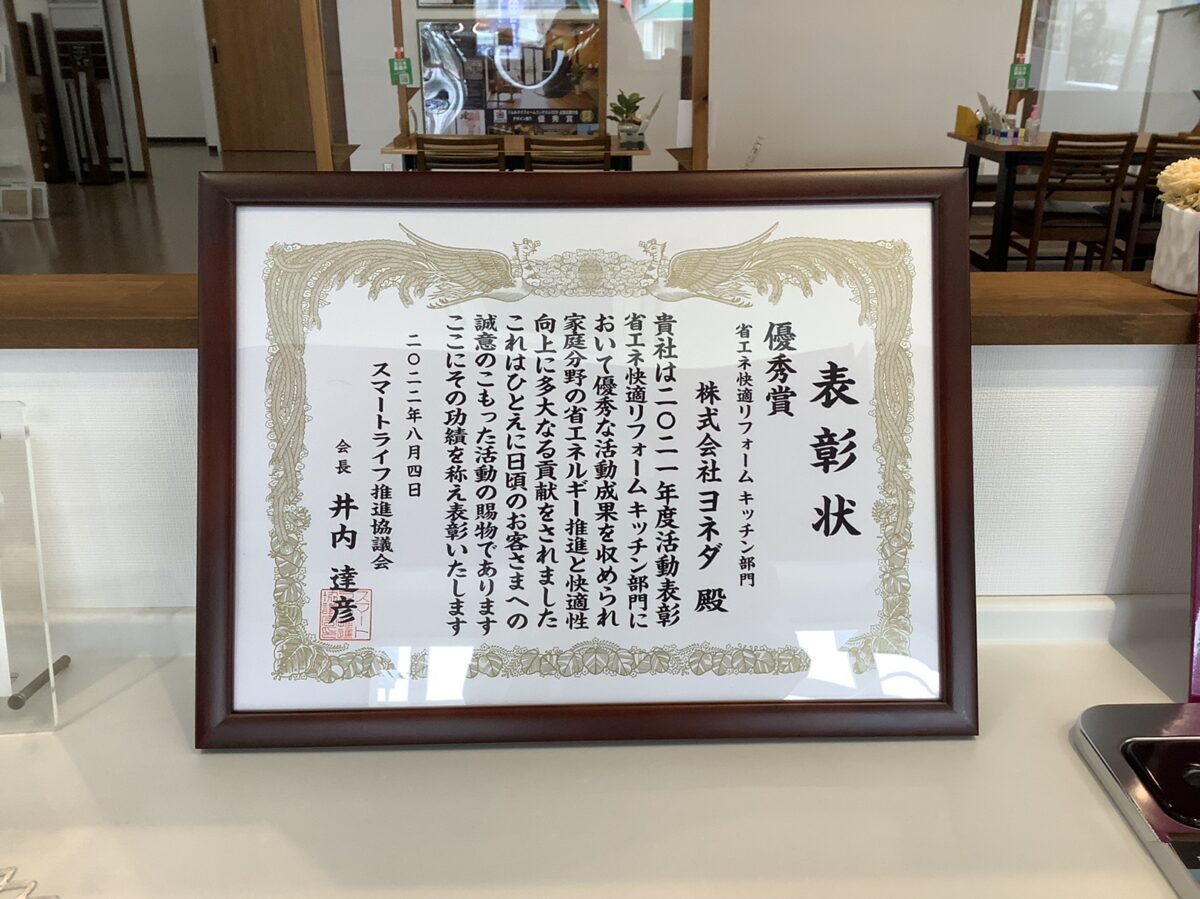 表彰状
優秀賞
省エネ快適リフォーム キッチン部門
株式会社ヨネダ 殿
貴社は二〇二一年度活動表彰
省エネ快適リフォームキッチン部門に
おいて優秀な活動成果を収められ
家庭分野の省エネルギー推進と快適性
向上に多大なる貢献をされました
これはひとえに日頃のお客さまへの
誠意のこもった活動の賜物であります
ここにその功績を称え表彰いたします
二〇二二年八月四日
スマートライフ推進協議会
会長 井内 達彦
優秀賞